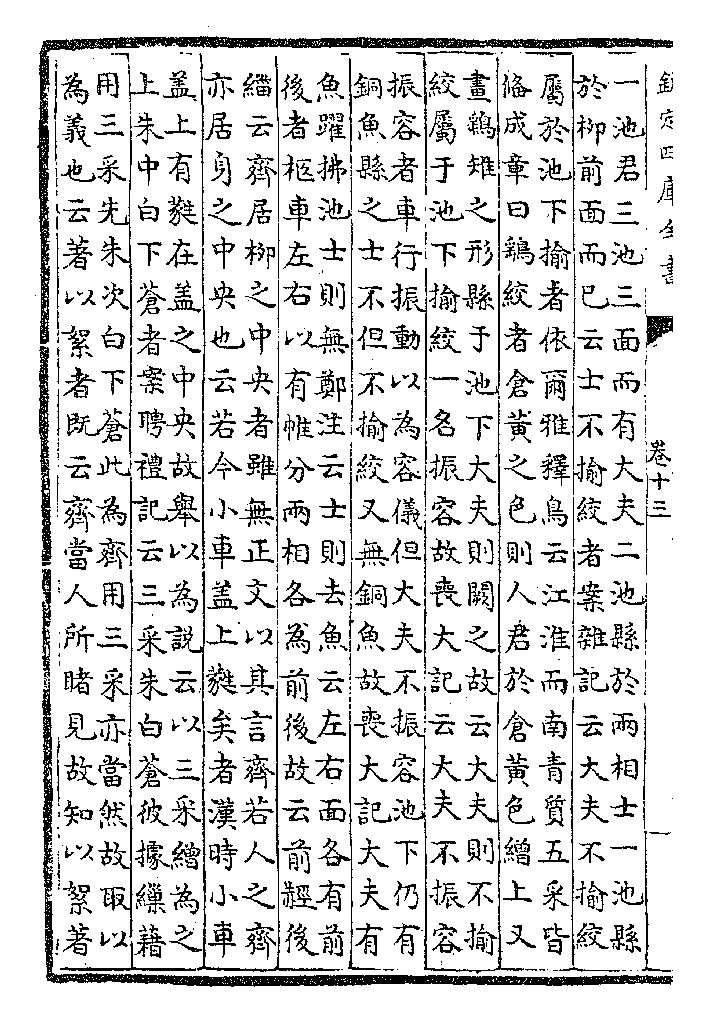 欽定四庫全書
卷十三
一
一池君三池三面而有大夫二池縣於兩相士一池縣
於柳前面而已云士不揄絞者案雜記云大夫不揄絞
屬於池下揄者依爾雅釋鳥云江淮而南青質五采皆
俻成章曰鷂絞者倉黃之色則人君於倉黃色繒上又
畫鷂雉之形縣于池下大夫則闕之故云大夫則不揄
絞屬于池下揄絞一名振容故喪大記云大夫不振容
振容者車行振動以為容儀但大夫不振容池下仍有
銅魚縣之士不但不揄絞又無銅魚故喪大記大夫有
魚躍拂池士則無鄭注云士則去魚云左右面各有前
後者柩車左右以有帷分兩相各為前後故云前䞓後
緇云齊居柳之中央者雖無正文以其言齊若人之齊
亦居身之中央也云若今小車盖上蕤矣者漢時小車
盖上有蕤在盖之中央故舉以為説云以三采繒為之
上朱中白下蒼者案聘禮記云三采朱白蒼彼據繅藉
用三采先朱次白下蒼此為齊用三采亦當然故取以
為義也云著以絮者既云齊當人所睹見故知以絮著